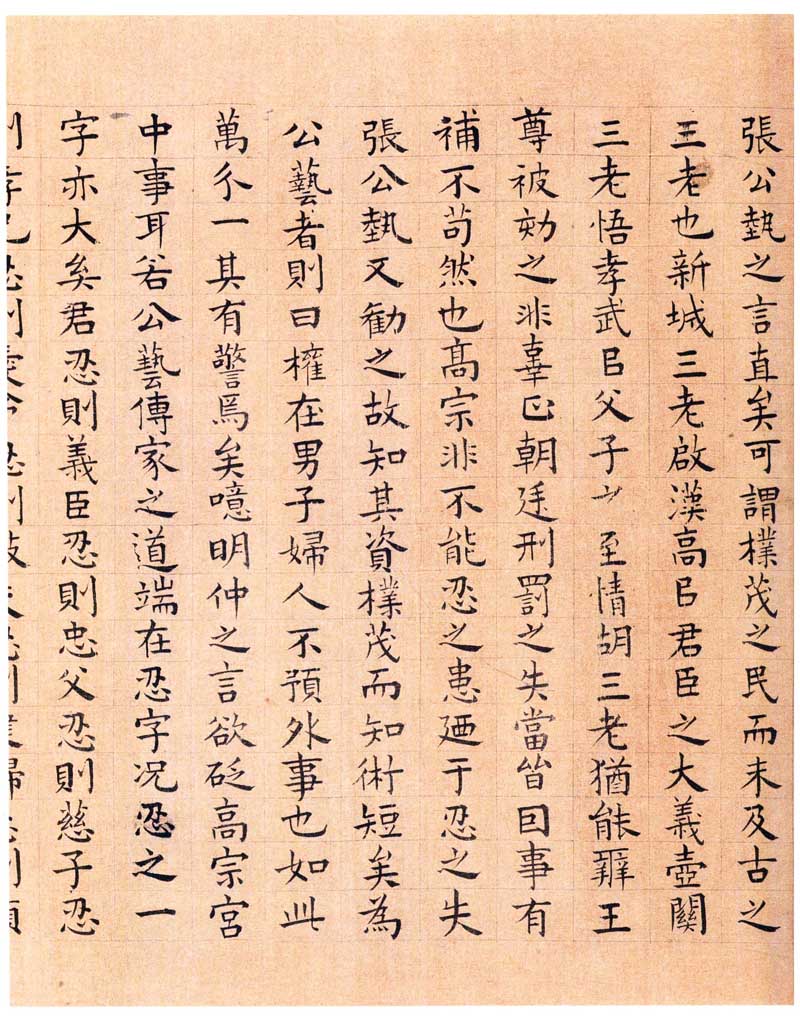 張公埶之言直矣可謂樸茂之民而未及古之
三老也新城三老啟漢高㠯君臣之大義壺關
三老悟孝武㠯父子之至情胡三老猶能辭王
尊被劾之非辜正朝廷刑罰之失當皆因事有
補不苟然也髙宗非不能忍之患廼于忍之失
張公埶又勸之故知其資樸茂而知術短矣為
公藝者則曰權在男子婦人不預外事也如此
萬分一其有警焉矣噫明仲之言欲砭高宗宮
中事耳若公藝傳家之道端在忍字況忍之一
字亦大矣君忍則義臣忍則忠父忍則慈子忍